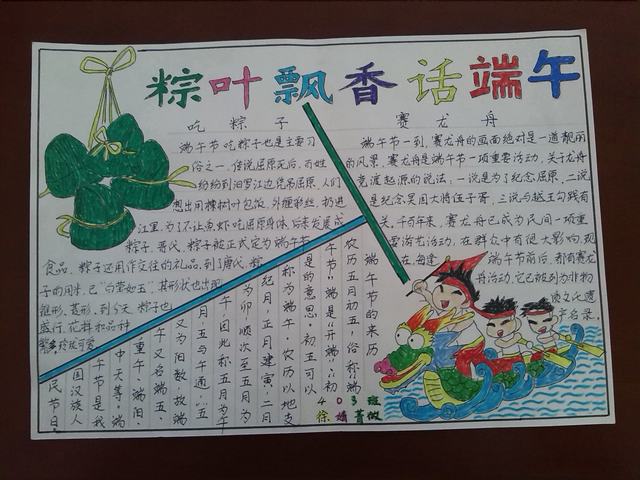 粽叶飘香话端午
吃粽子
端午节吃粽子也是主要习
俗之一,传说屈原死后,百姓
纷纷到汨罗江边凭吊屈原,人们
想出用楝树叶包饭,外缠彩丝,扔进
江里,为了不让鱼虾吃屈原身体,后来发展成
粽子,晋代,粽子被正式定为端午节
食品,粽子还用作交往的礼品,到了唐代,粽
子的用米,已"白莹如玉",其形状也出现
锥形、菱形,到今天,粽子也
盛行,花样和品种
繁多玲珑可爱
赛龙舟
端午节一到,赛龙舟的画面绝对是一道靓丽
的风景,赛龙舟是端午节一项重要活动,关于龙舟
竞渡起源的说法:一说是为了纪念屈原,二说
是纪念吴国大将伍子胥,三说与越王勾践有
关,千百年来,赛龙舟已成为民间一项重
要游艺活动,在群众中有很大影响,现
在每逢
端午节前后,都有赛龙
舟活动,它已被列为非物
质文化遗
产名录。
端午节的来历
农历五月初五,俗称"端
午节",端是"开端"、"初"
的意思,初五可以
称为端午,农历以地支
纪月,正月建寅,二月
为卯,顺次至五月为
午,因此称五月为午
月,五与午通,五
又为阳数,故端
午又名端五、
重午、端阳、
中天等,端
午节是我
国汉族人
民节日。
4 0 3 班
徐婧菁做